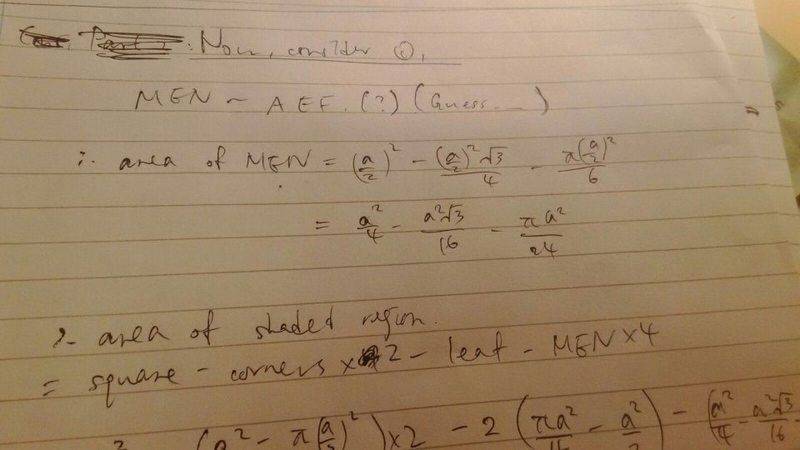 Now, consider ①,
MEN ~ AEF. (?) (Guess...)
∴ area of MEN = (a/2)² - (a/2)²√3/4 - π(a/2)²/6
= a²/4 - a²√3/16 - πa²/24
∴ area of shaded region.
= square - corners × 2 - leaf - MEN × 4
(a² - π(a/2)²) × 2 - 2 (πa² - a²) - (a²/4 - a²√3/16